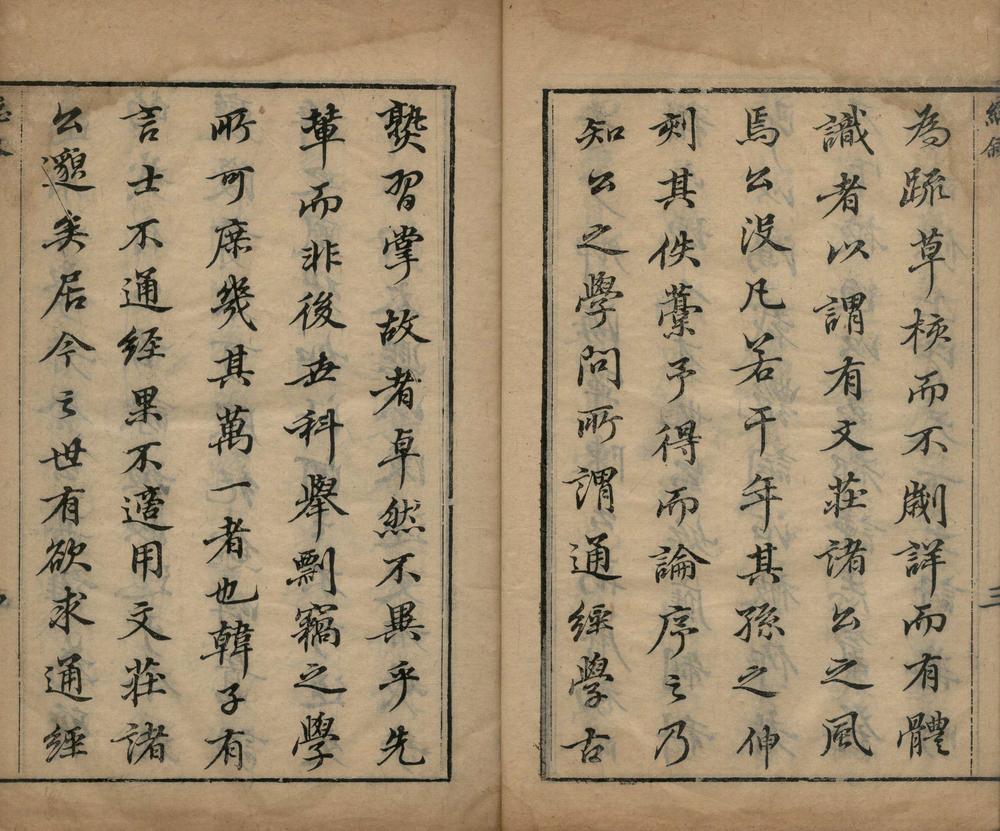 為疏草核而不劌詳而有體
識者以謂有文莊諸公之風
焉公没凡若干年其孫之伸
刻其佚藁予得而論序之乃
知公之學問所謂通經學古
爕習掌故者卓然不異乎先
軰而非後世科舉剽竊之學
所可庶幾其萬一者也韓子有
言士不通經果不適用文莊諸
公邈矣居今之世有欲求通經
三